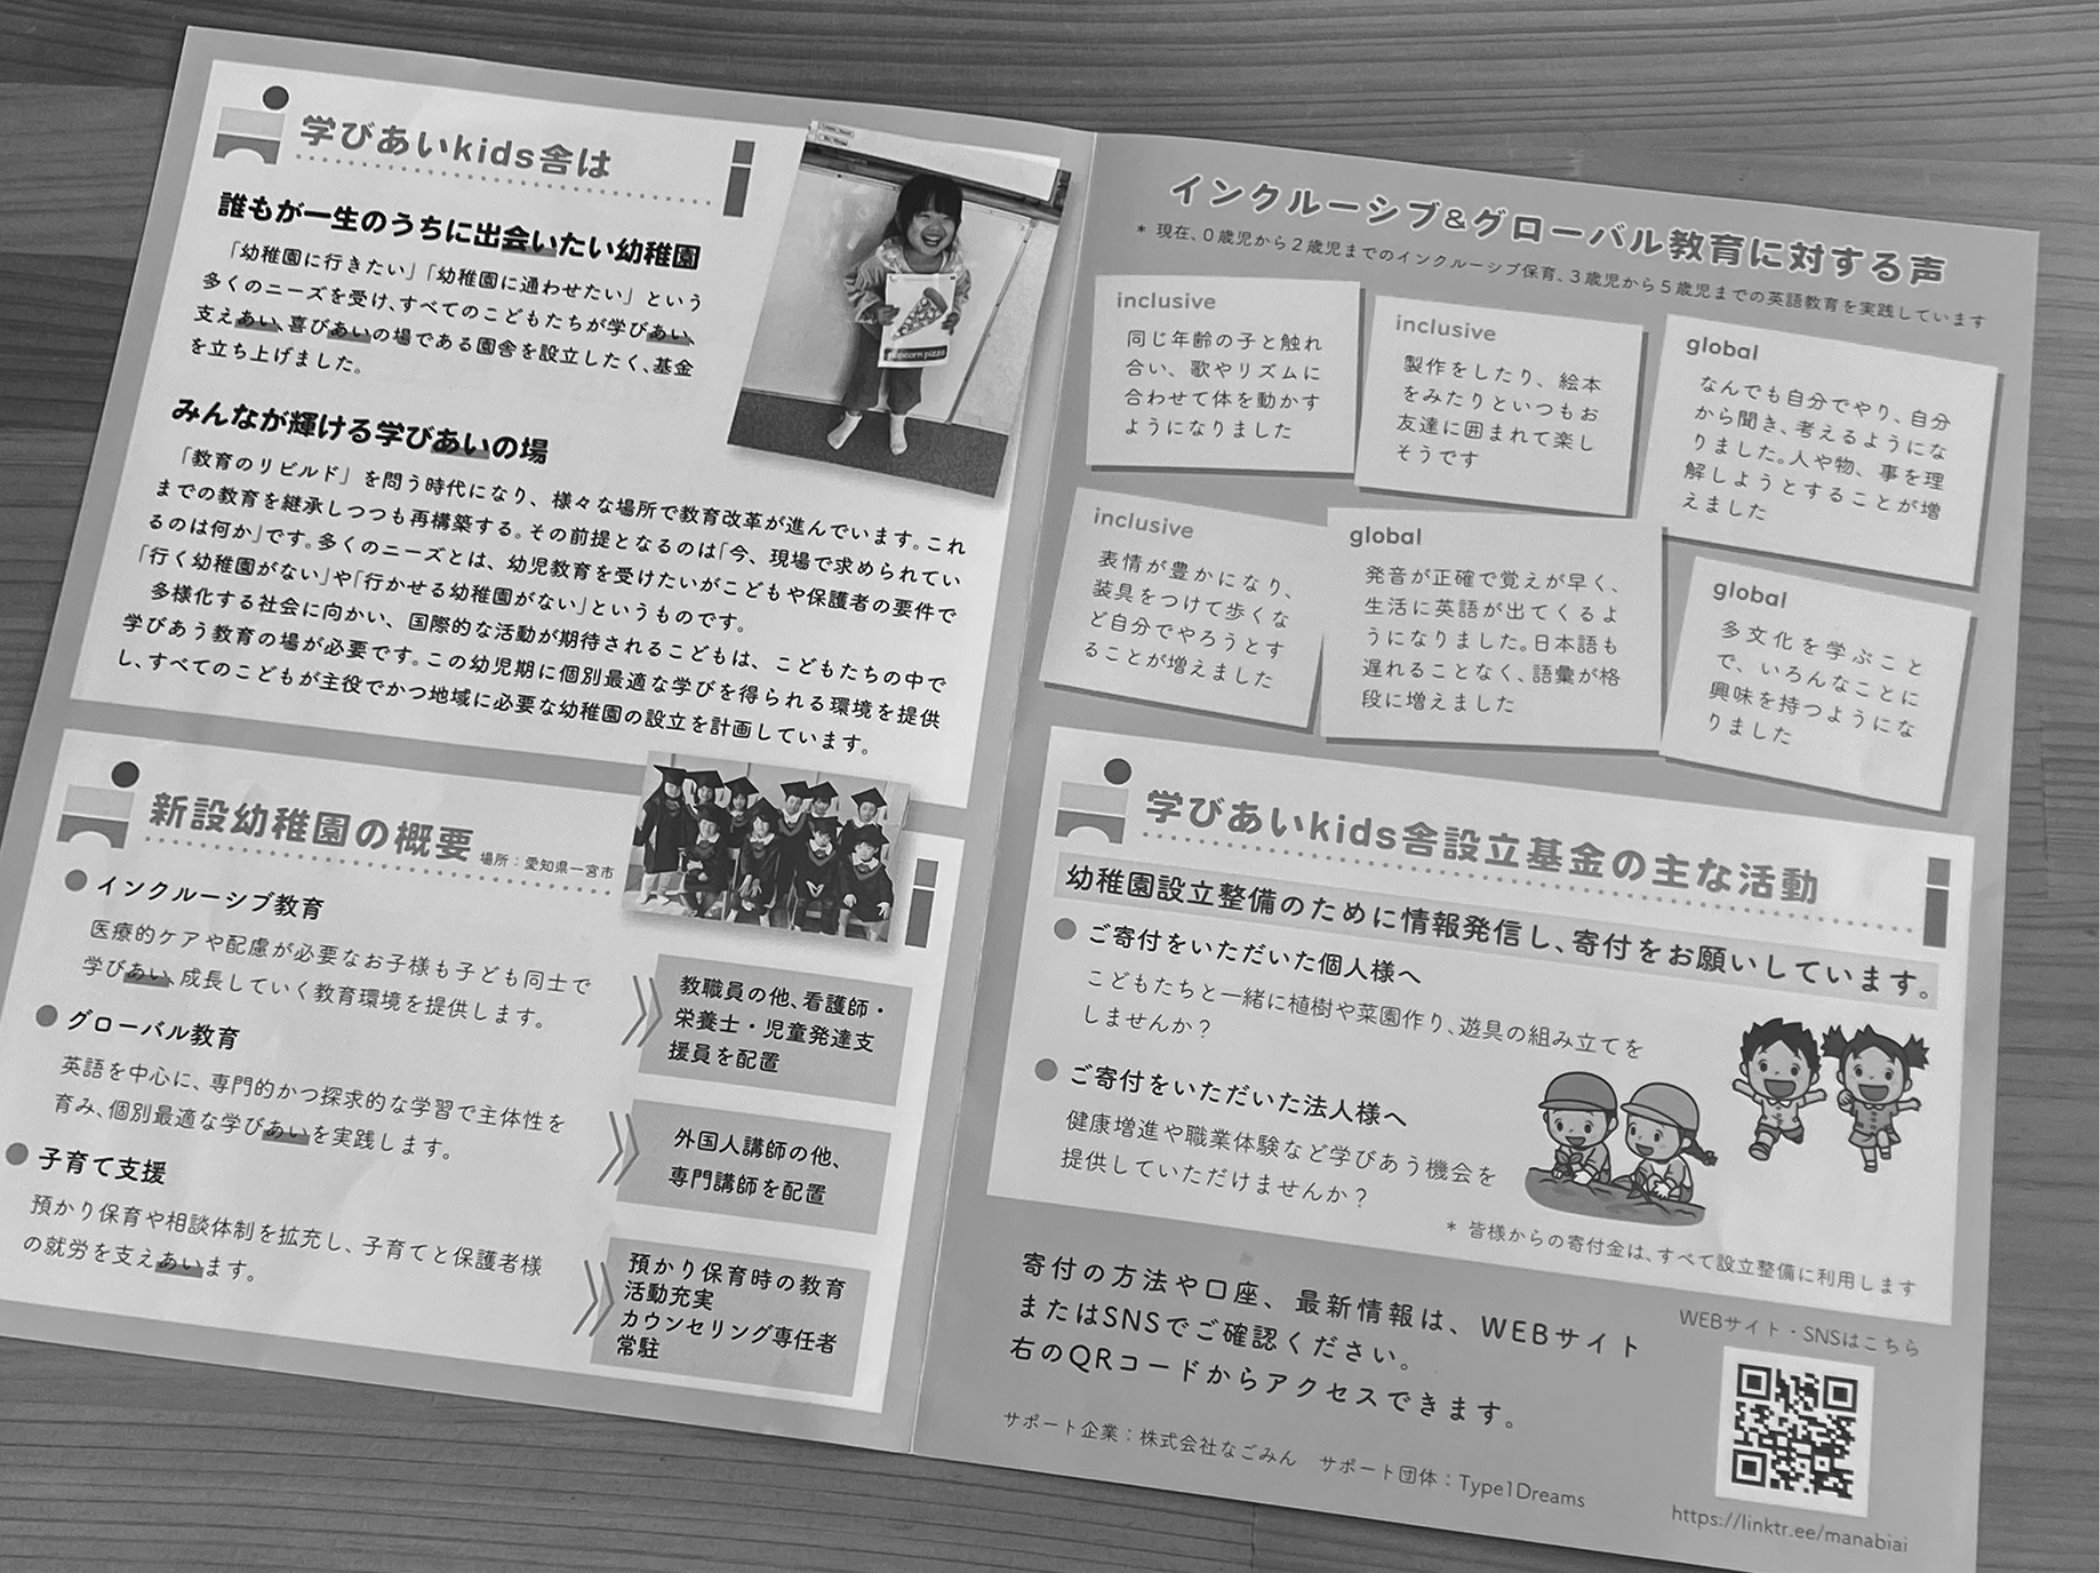 学びあいkids舎は
誰もが一生のうちに出会いたい幼稚園
「幼稚園に行きたい」「幼稚園に通わせたい」という
多くのニーズを受け、すべてのこどもたちが学びあい、
支えあい、喜びあいの場である園舎を設立したく、基金
を立ち上げました。
popcorn pizza
みんなが輝ける学びあいの場
「教育のリビルド」を問う時代になり、様々な場所で教育改革が進んでいます。これ
までの教育を継承しつつも再構築する。その前提となるのは「今、現場で求められてい
るのは何か」です。多くのニーズとは、幼児教育を受けたいがこどもや保護者の要件で
「行く幼稚園がない」や「行かせる幼稚園がない」というものです。
多様化する社会に向かい、国際的な活動が期待されるこどもは、こどもたちの中で
学びあう教育の場が必要です。この幼児期に個別最適な学びを得られる環境を提供
し、すべてのこどもが主役でかつ地域に必要な幼稚園の設立を計画しています。
新設幼稚園の概要 場所：愛知県一宮市
インクルーシブ教育
医療的ケアや配慮が必要なお子様も子ども同士で
学びあい、成長していく教育環境を提供します。
教職員の他、看護師・
栄養士・児童発達支
援員を配置
グローバル教育
英語を中心に、専門的かつ探求的な学習で主体性を
育み、個別最適な学びあいを実践します。
外国人講師の他、
専門講師を配置
子育て支援
預かり保育や相談体制を拡充し、子育てと保護者様
の就労を支えあいます。
預かり保育時の教育
活動充実
カウンセリング専任者
常駐
インクルーシブ&グローバル教育に対する声
* 現在、0歳児から2歳児までのインクルーシブ保育、3歳児から5歳児までの英語教育を実践しています
inclusive
同じ年齢の子と触れ
合い、歌やリズムに
合わせて体を動かす
ようになりました
inclusive
製作をしたり、絵本
をみたりといつもお
友達に囲まれて楽し
そうです
global
なんでも自分でやり、自分
から聞き、考えるようにな
りました。人や物、事を理
解しようとすることが増
えました
inclusive
表情が豊かになり、
装具をつけて歩くな
ど自分でやろうとす
ることが増えました
global
発音が正確で覚えが早く、
生活に英語が出てくるよ
うになりました。日本語も
遅れることなく、語彙が格
段に増えました
global
多文化を学ぶこと
で、いろんなことに
興味を持つようにな
りました
学びあいkids舎設立基金の主な活動
幼稚園設立整備のために情報発信し、寄付をお願いしています。
ご寄付をいただいた個人様へ
こどもたちと一緒に植樹や菜園作り、遊具の組み立てを
しませんか？
ご寄付をいただいた法人様へ
健康増進や職業体験など学びあう機会を
提供していただけませんか？
* 皆様からの寄付金は、すべて設立整備に利用します
寄付の方法や口座、最新情報は、WEBサイト
またはSNSでご確認ください。
右のQRコードからアクセスできます。
WEBサイト・SNSはこちら
サポート企業：株式会社なごみん サポート団体：Type1Dreams
https://linktr.ee/manabiai